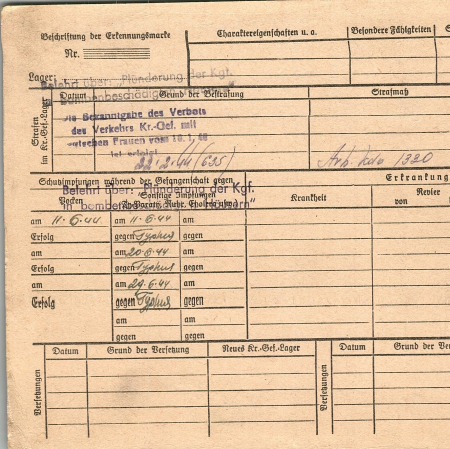 Beschriftung der Erkennungsmarke
Nr.
Charaktereigenschaften u. a.
Besondere Fähigkeiten
Lager:
Belehrt über: „Plünderung der Kgf.
Datum
Grund der Bestrafung
Strafmaß
Strafen
im Kr.-Gef.-Lager
Die Bekanntgabe des Verbots
des Verkehrs Kr.-Gef. mit
deutschen Frauen vom 10.1.40
ist erfolgt
22.2.44 (635)
Arb. Kdo 1320
Schutzimpfungen während der Gefangenschaft gegen
Erkrankung
Belehrt über: „Plünderung der Kgf.
in bomben Häusern“
Pocken
Sonstige Impfungen
Krankheit
Revier
von
am 11.6.44
am 11-6-44
am
Erfolg
gegen Typhus
gegen
am
am 20-6-44
am
Erfolg
gegen Typhus
gegen
am
am 29-6-44
am
Erfolg
gegen Typhus
gegen
am
am
gegen
gegen
Versetzungen
Datum
Grund der Versetzung
Neues Kr.-Gef.-Lager
Versetzungen
Datum
Grund der